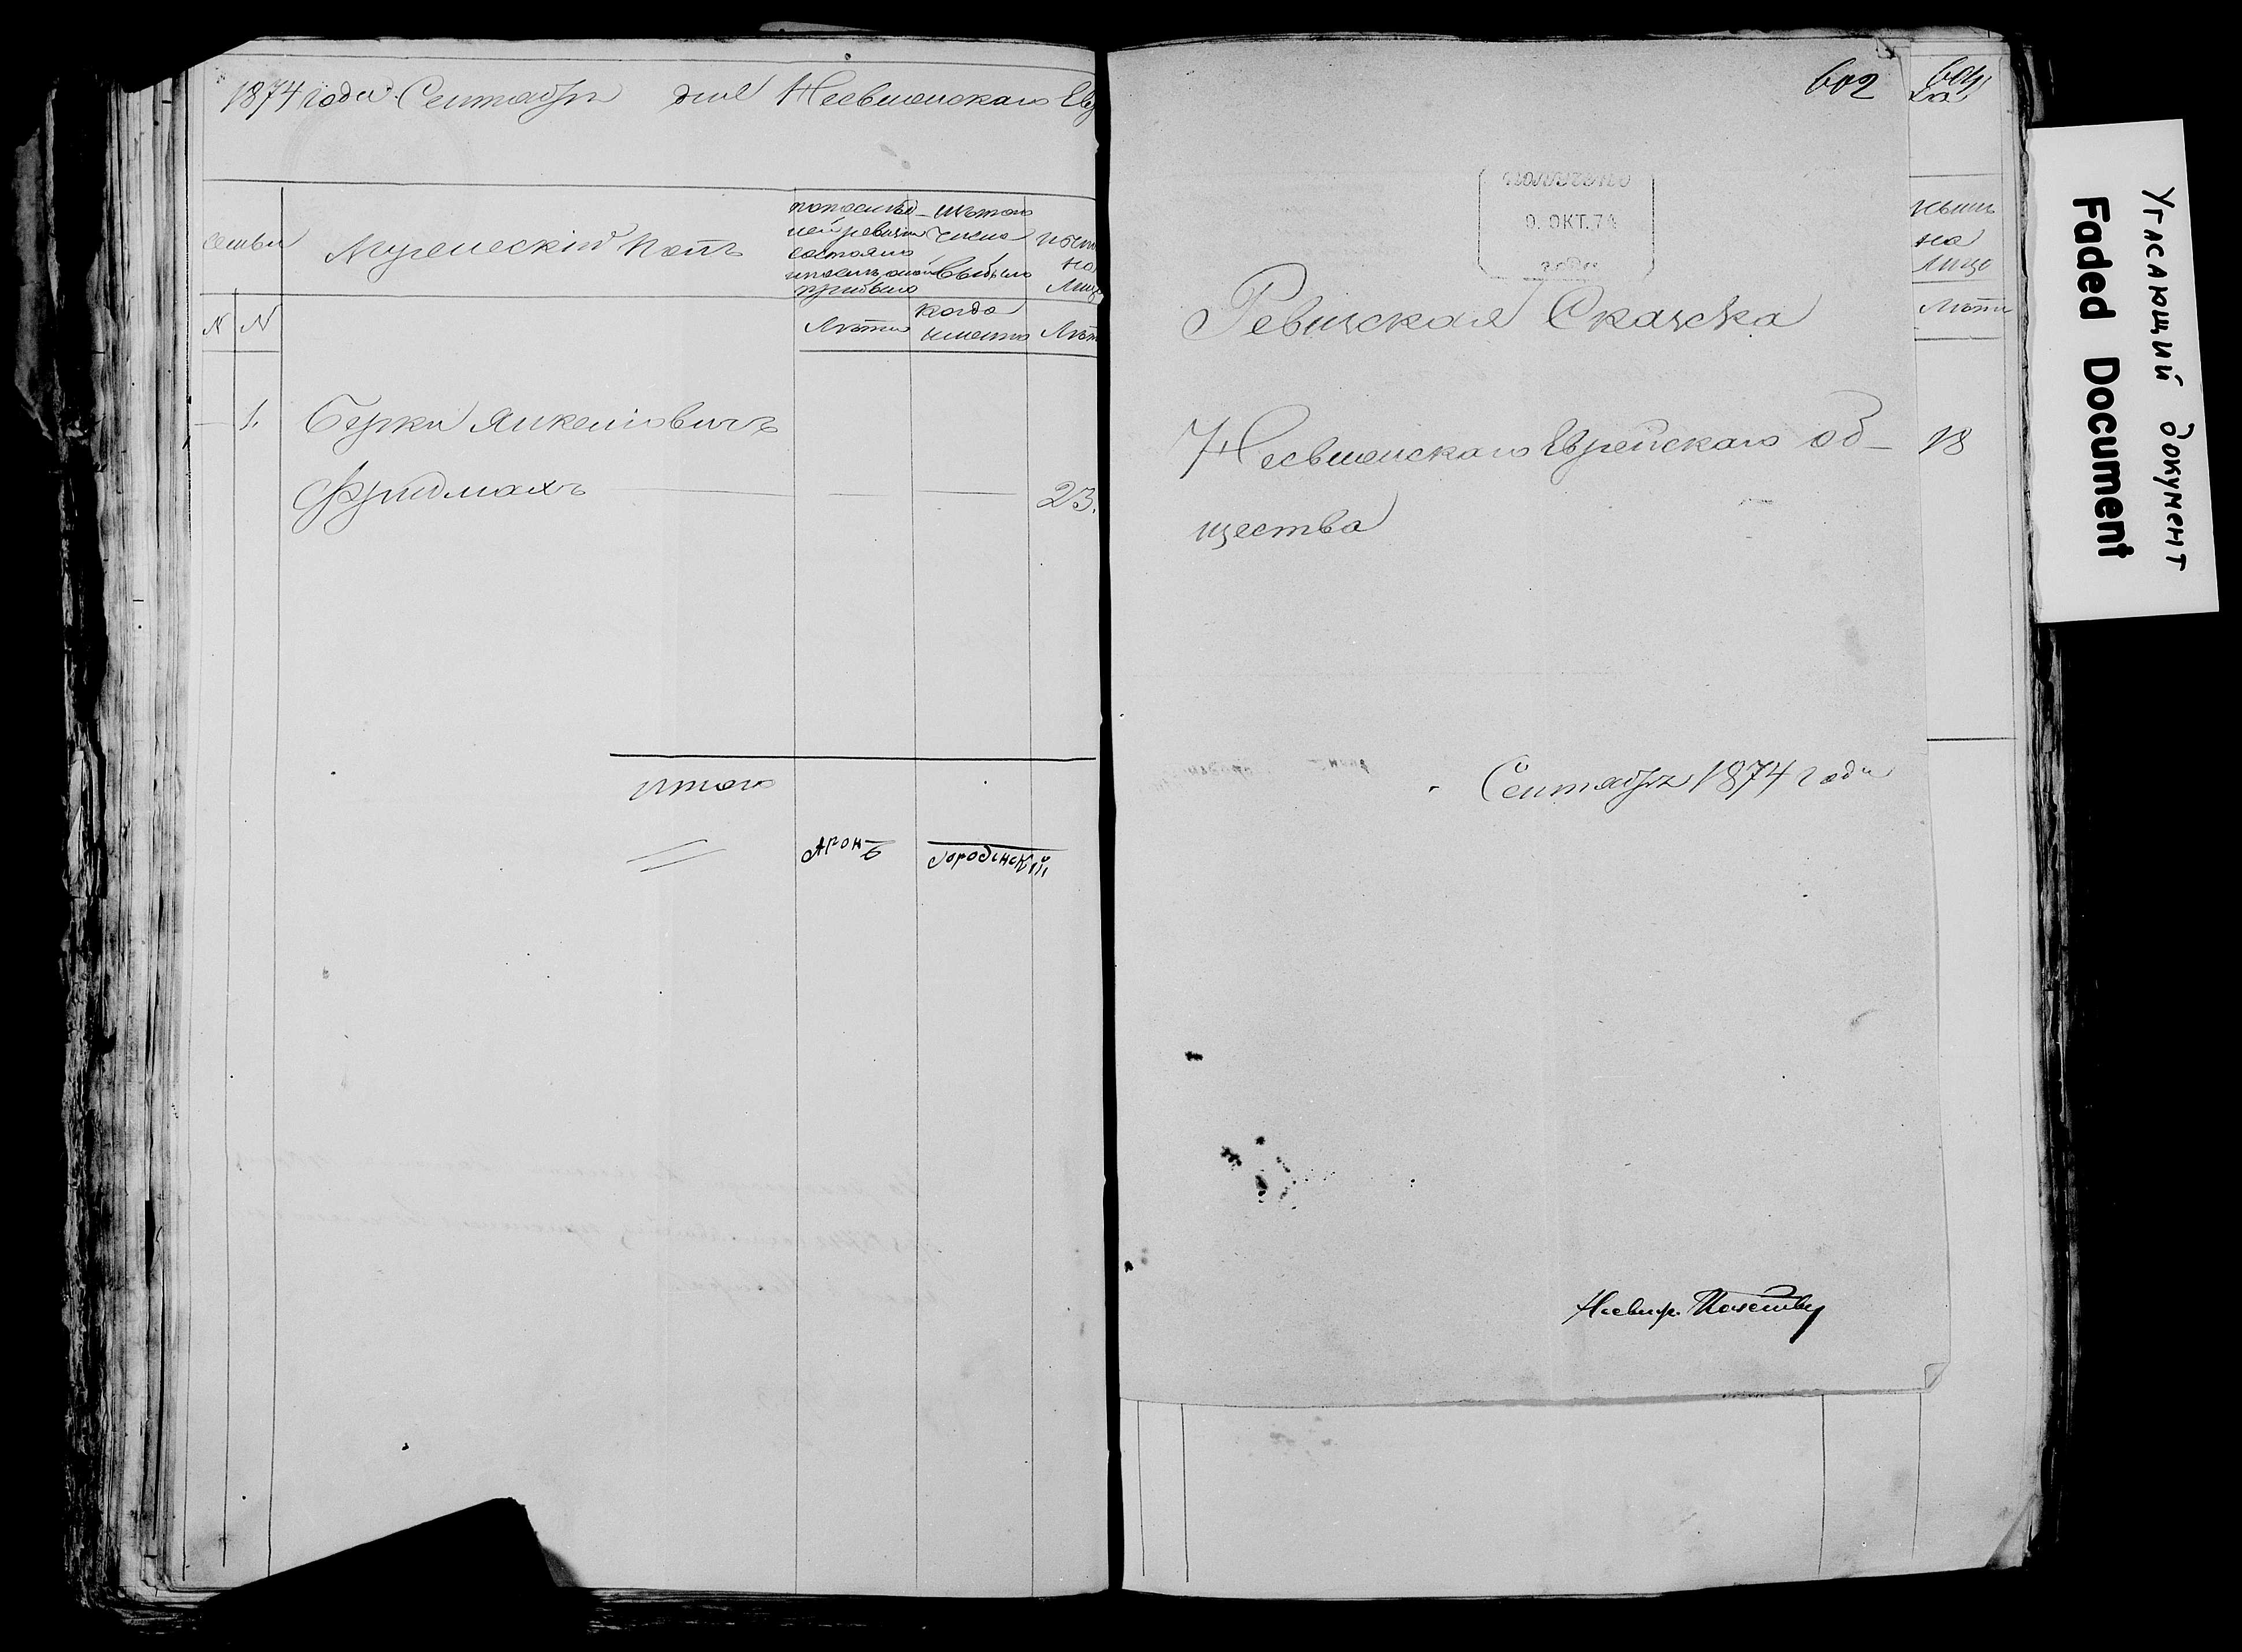 1874 года Сентября дня Несвижскаго Ев
семьи
Мужескій полъ
по послѣд-
ней ревизіи
состояло
и послѣ оной
прибыло
изъ того
числа
выбыло
нын
на
Лиц
N N
Лѣта
когда
именно
Лѣт
1. Берко Янкелевичъ
Фридманъ 23.
Итого
Аронъ Городенскій
602
ПОЛУЧЕНО
9. ОКТ. 74
года
Ревизская Сказка
Несвижскаго Еврейскаго об-
щества
Сентября 1874 года
604
нынѣ
на
лицо
Лѣта
18
Угасающий документ
Faded Document